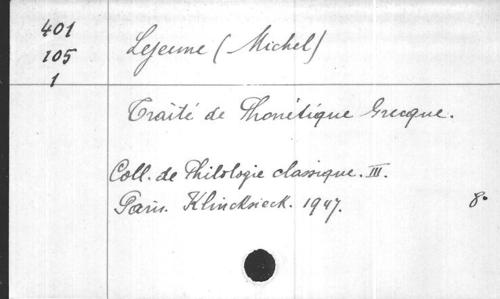 401
105
1
Lejeune (Michel)
Traité de Phonétique Grecque.
Coll. de Philologie classique. III.
Paris. Klincksieck. 1947. 8º